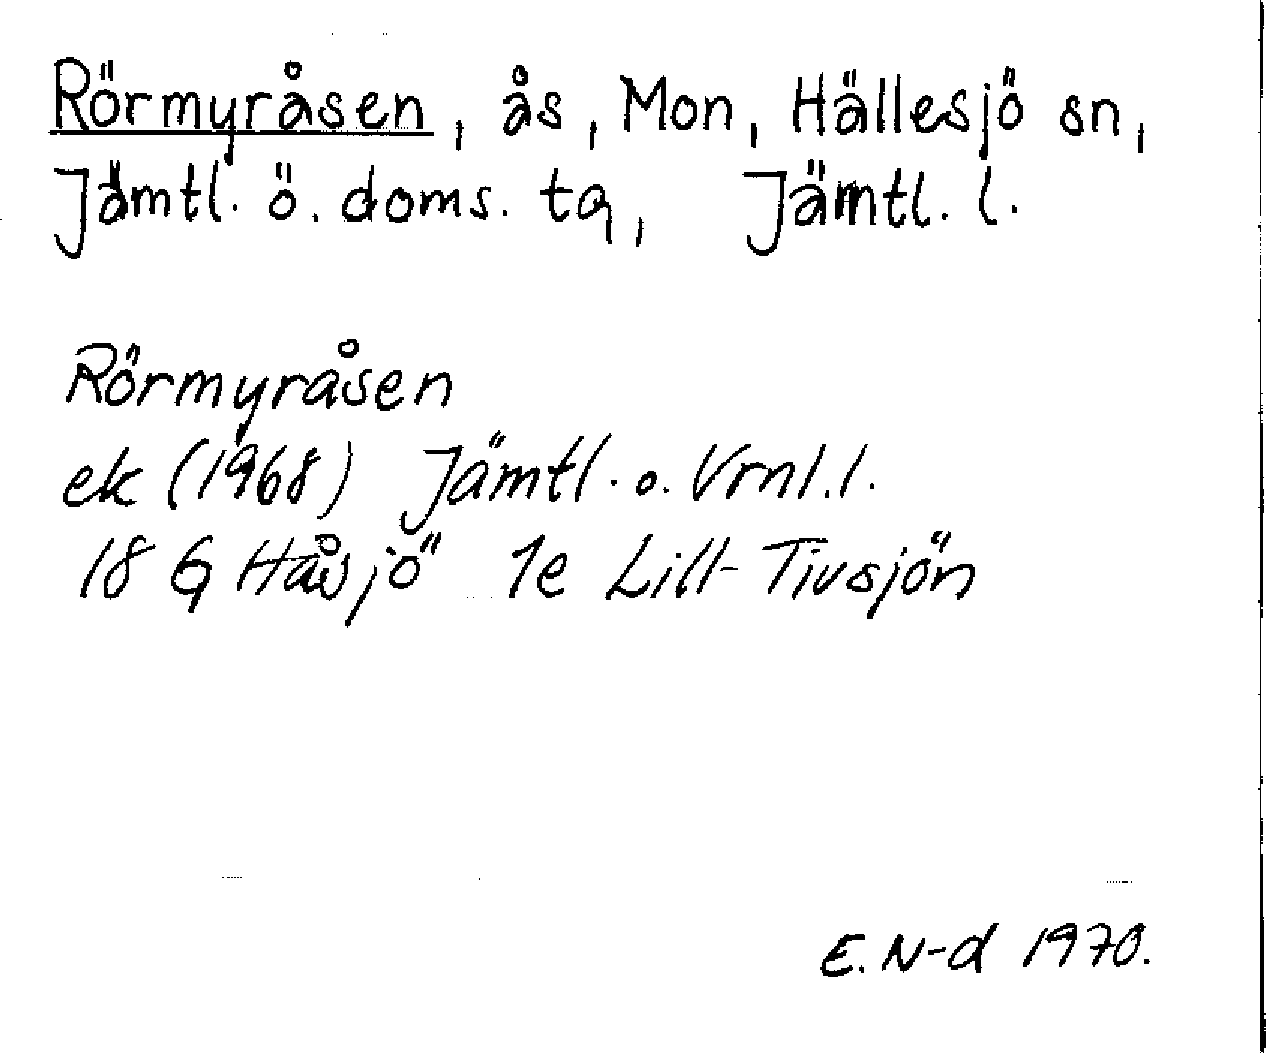 Rörmyråsen, ås, Mon, Hällesjö sn,
Jämtl. ö. doms. tq, Jämtl. l.
Rörmyråsen
ek (1968) Jämtl. o. Vrnl. l.
18 G Håsjö 1e Lill-Tivsjön
E. N-d 1970.